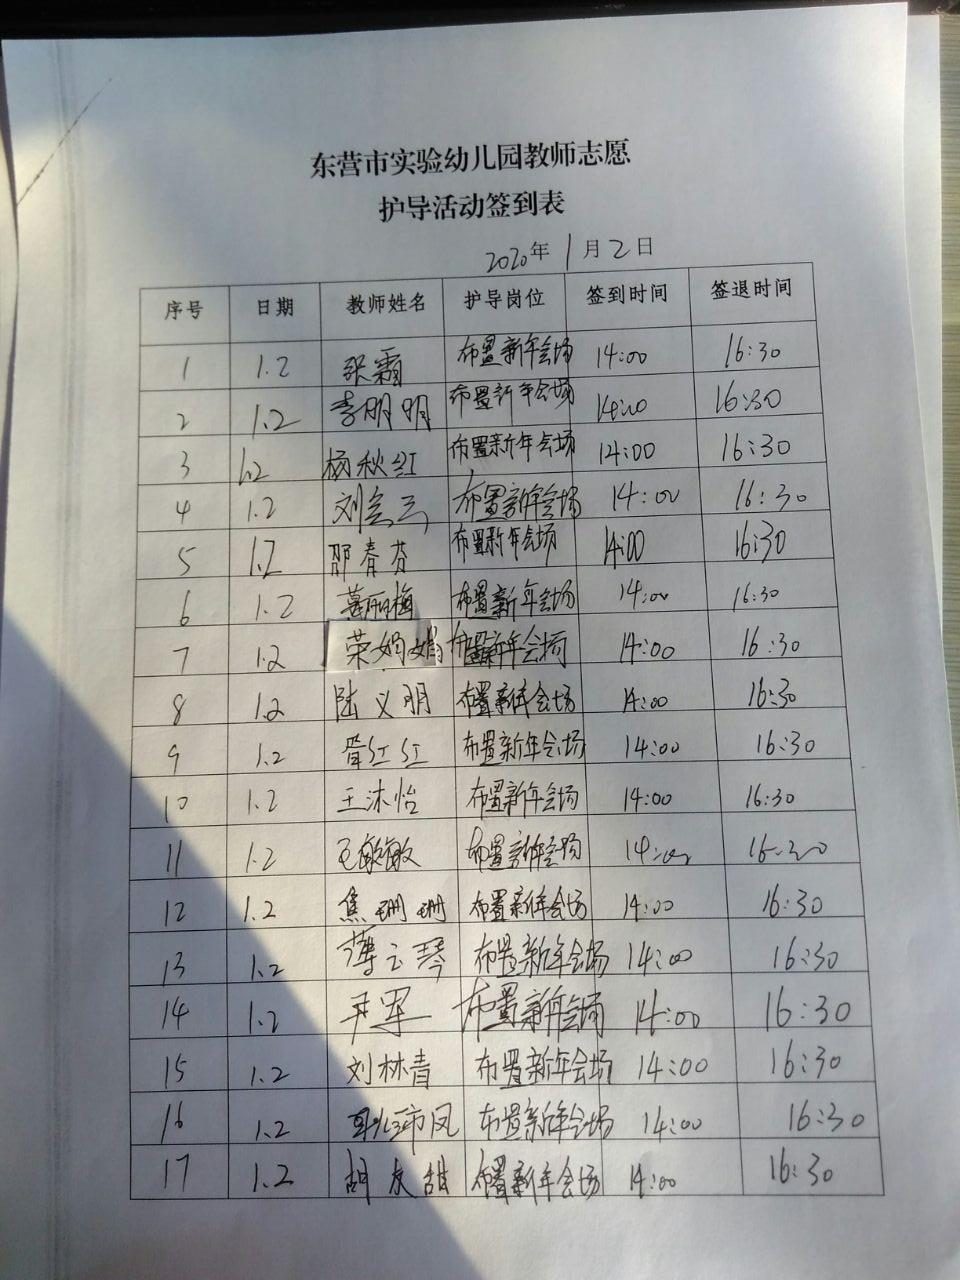 东营市实验幼儿园教师志愿
护导活动签到表
2020年1月2日
序号 日期 教师姓名 护导岗位 签到时间 签退时间
1 1.2 张霜 布置新年会场 14:00 16:30
2 1.2 李明明 布置新年会场 14:00 16:30
3 1.2 杨秋红 布置新年会场 14:00 16:30
4 1.2 刘会云 布置新年会场 14:00 16:30
5 1.2 邵春芬 布置新年会场 14:00 16:30
6 1.2 葛丽梅 布置新年会场 14:00 16:30
7 1.2 荣娟娟 布置新年会场 14:00 16:30
8 1.2 陆义明 布置新年会场 14:00 16:30
9 1.2 红红 布置新年会场 14:00 16:30
10 1.2 王沐怡 布置新年会场 14:00 16:30
11 1.2 王敏敏 布置新年会场 14:00 16:30
12 1.2 焦珊珊 布置新年会场 14:00 16:30
13 1.2 薄云琴 布置新年会场 14:00 16:30
14 1.2 尹军 布置新年会场 14:00 16:30
15 1.2 刘林青 布置新年会场 14:00 16:30
16 1.2 布置新年会场 14:00 16:30
17 1.2 胡友甜 布置新年会场 14:00 16:30